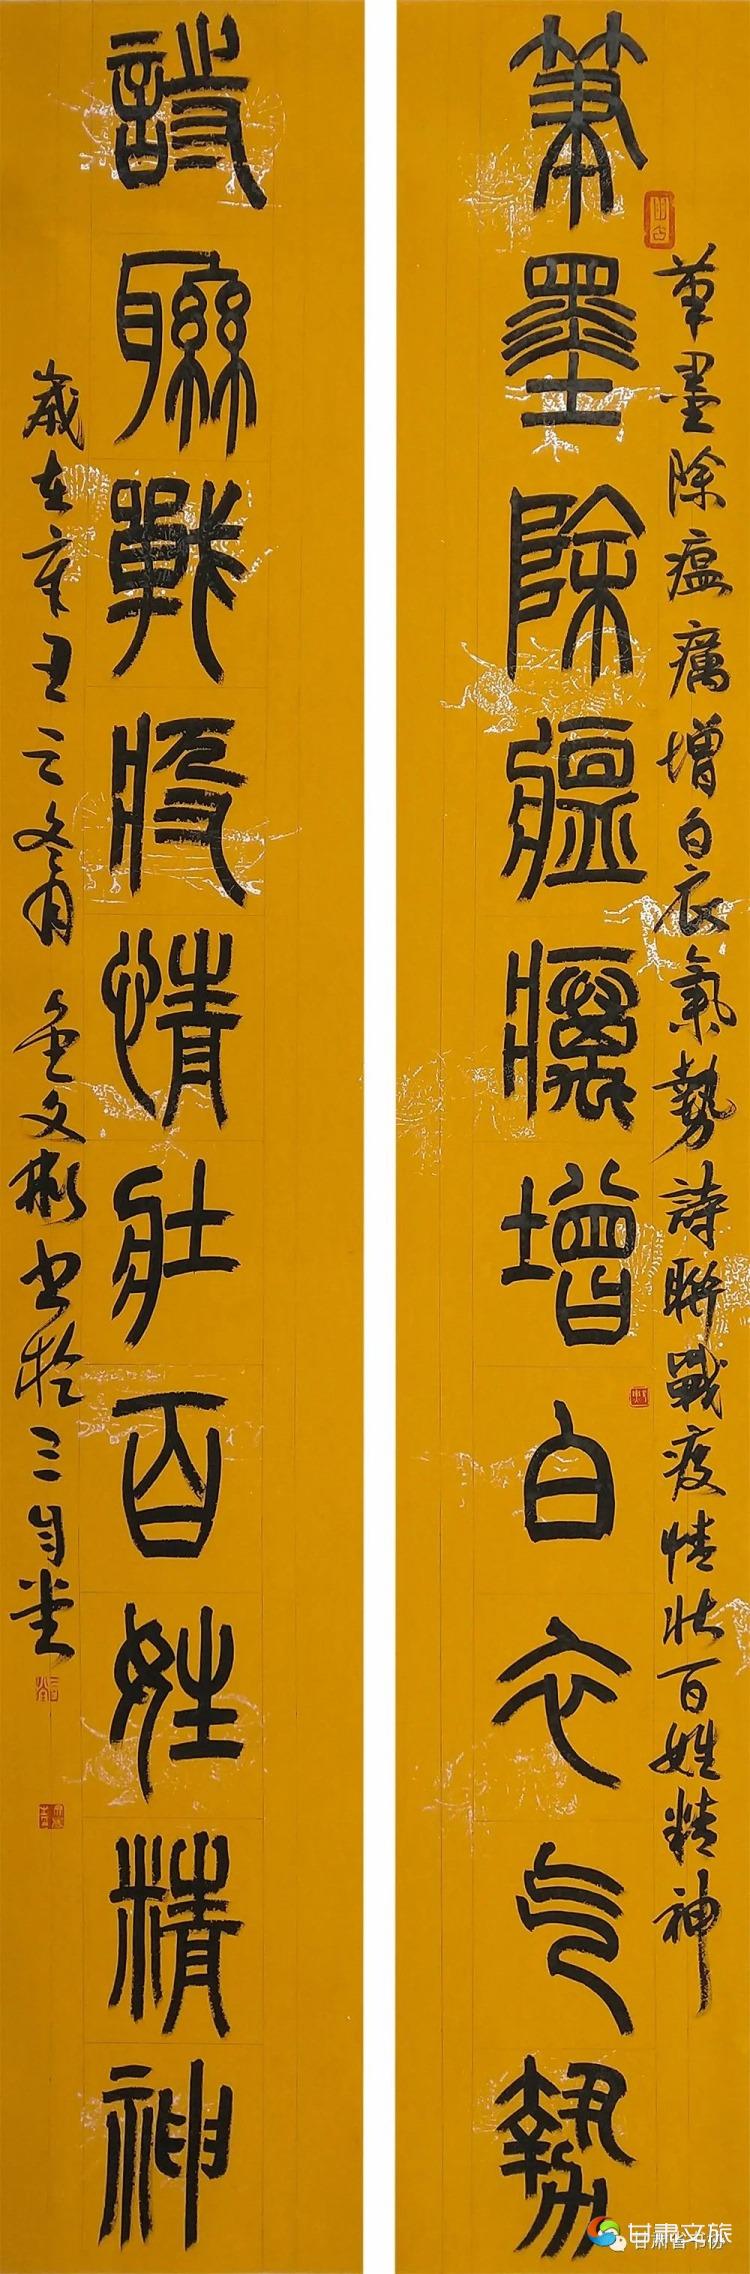 筆墨除瘟癘增白衣气勢
筆墨除瘟癘增白衣氣勢詩聯戰疫情壯百姓精神
詩聯戰疫情壯百姓精神
歲在辛丑之冬月
文彬書於三自堂
甘肃文旅
甘肃省书协